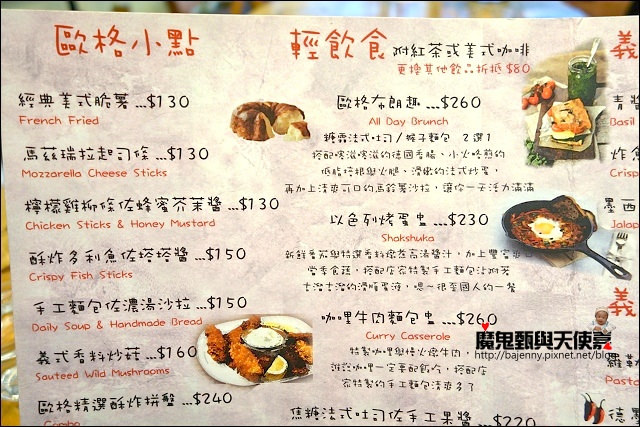 歐格小點
經典美式脆薯...$130
French Fried
馬茲瑞拉起司條...$130
Mozzarella Cheese Sticks
檸檬雞柳條佐蜂蜜芥茉醬...$130
Chicken Sticks & Honey Mustard
酥炸多利魚佐塔塔醬...$150
Crispy Fish Sticks
手工麵包佐濃湯沙拉...$150
Daily Soup & Handmade Bread
義式香料炒菇...$160
Sauteed Wild Mushrooms
歐格精選酥炸拼盤...$240
Combo
輕飲食 附紅茶或美式咖啡
更換其他飲品折抵$80
歐格布朗趣...$260
All Day Brunch
糖霜法式吐司/猴子麵包 2選1
搭配喀滋喀滋的德國香腸、小火烤煎的
低脂培根與火腿、滑嫩的法式炒蛋,
再加上清爽可口的馬鈴薯沙拉,讓你一天活力滿滿
以色列烤蛋盅...$230
Shakshuka
新鮮蕃茄與特選香料燉蔬高湯醬汁,加上豐富
當季食蔬,搭配店家特製手工麵包沾附著
古溜古溜的濃順蛋液,嗯~很至國人的一餐
咖哩牛肉麵包盅...$260
Curry Casserole
特製咖哩與慢火燉牛肉,
誰說咖哩一定要配飯吃,搭配店
家特製的手工麵包清爽多了
焦糖法式吐司佐手工果醬...$220
義
青醬
Basil
炸魚
Crisp
墨西
Jalop
義
羅勒
Pasta
德墨
魔鬼甄與天使嘉
http://bajenny.pixnet.net/blog